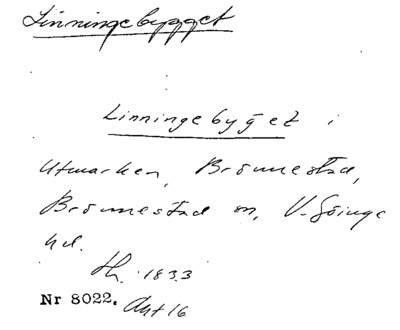 Linningebygget
Linningebyget i
Utmarken, Brönnestad,
Brönnestad sn, V. Göinge
hd.
1833
Nr 8022. Akt 16